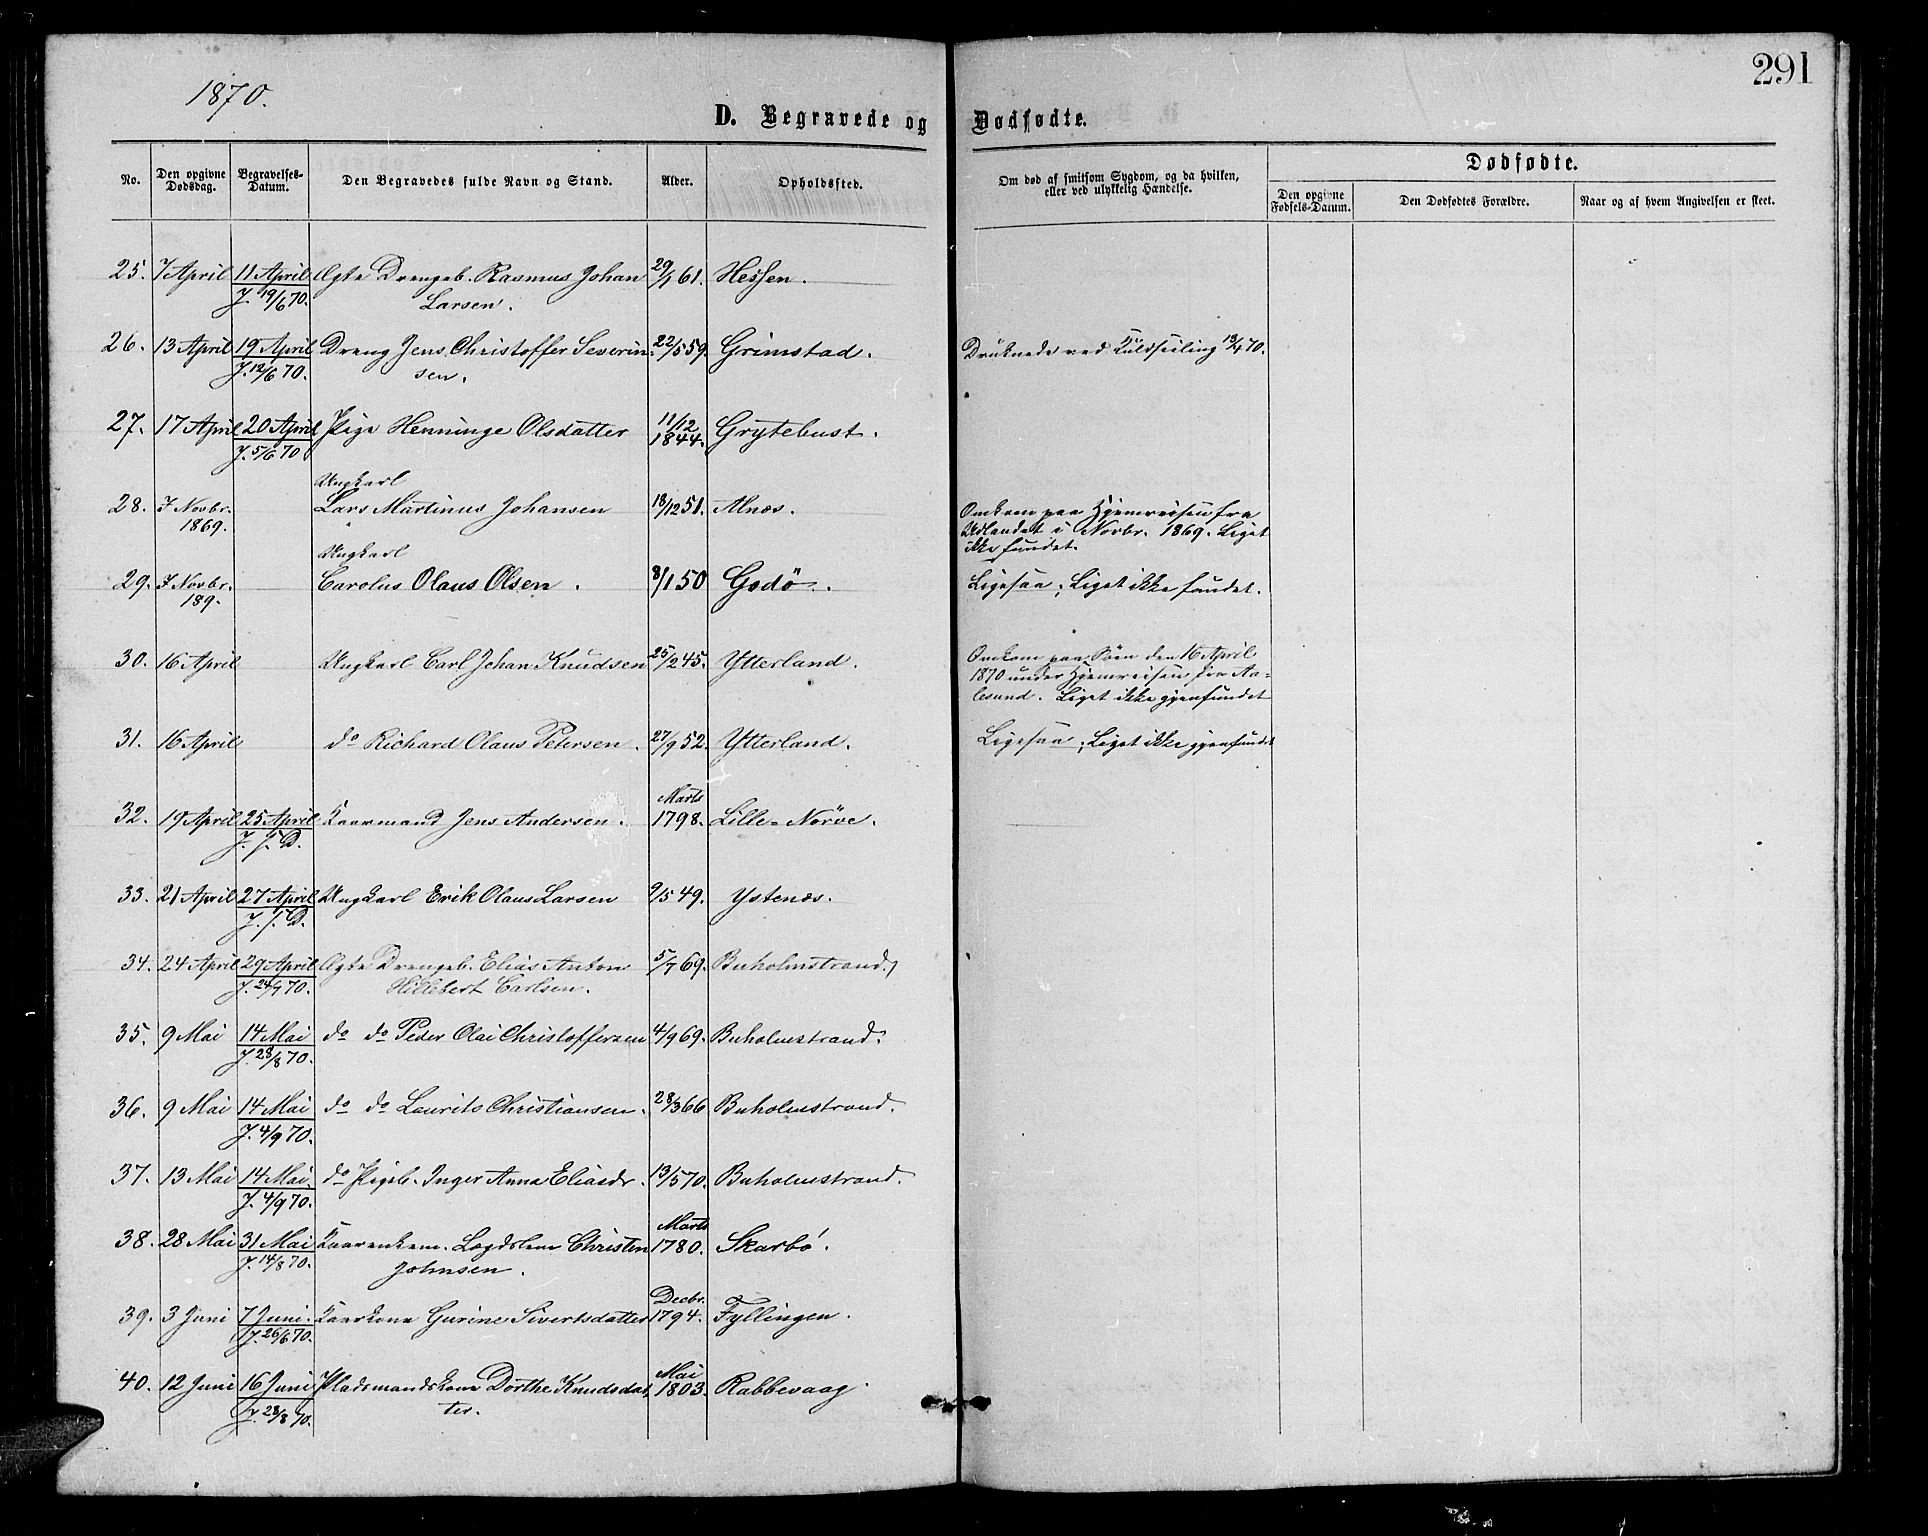 291
1870.
D. Begravede og Dødfødte.
No. Den opgivne Dødsdag. Begravelses-Datum. Den Begravedes fulde Navn og Stand. Alder. Opholdssted. Om død af smitsom Sygdom, og da hvilken, eller ved ulykkelig Hændelse. Dødfødte.
Den opgivne Fødsels-Datum. Den Dødfødtes Forældre. Naar og af hvem Angivelsen er skeet.
25. 7 April 11 April Ægte Drengeb. Rasmus Johan 29/1 61. Hessen.
J. 19/6 70. Larsen.
26. 13 April 19 April Dreng Jens Christoffer Severin 22/5 59. Grimstad. Druknede ved Kuldseiling 13/4 70.
J. 12/6 70. sen.
27. 17 April 20 April Pige Henninge Olsdatter 11/12 1844. Grytebust.
J. 5/6 70
Ungkarl
28. I Novbr. Lars Martinus Johansen 18/12 51. Alnæs. Omkom paa Hjemreisen fra
1869. Udlandet i Novbr. 1869. Liget
ikke fundet.
Ungkarl
29. I Novbr. Carolus Olaus Olsen. 8/1 50 Godö. Ligesaa; Liget ikke fundet.
189.
30. 16 April Ungkarl Carl Johan Knudsen 25/2 45. Ytterland. Omkom paa Söen den 16 April
1870 under Hjemreisen fra Aa-
lesund. Liget ikke gjenfundet
31. 16 April do Richard Olaus Petersen. 27/9 52. Ytterland. Ligesaa; Liget ikke gjenfundet
Marts
32. 19 April 25 April Kaarmand Jens Andersen. 1798. Lille-Nörve.
J. s. D.
33. 21 April 27 April Ungkarl Erik Olaus Larsen 9/5 49. Ystenæs.
J. s. D.
34. 24 April 29 April Ægte Drengeb. Elias Anton 5/7 69. Buholmstrand.
J. 24/7 70. Hillebert Carlsen.
35. 9 Mai 14 Mai do do Peder Olai Christoffersen 4/9 69. Buholmstrand.
J. 28/8 70.
36. 9 Mai 14 Mai do do Laurits Christiansen. 28/3 66 Buholmstrand.
J. 4/9 70.
37. 13 Mai 14 Mai do Pigeb. Inger Anna Eliasdr. 13/5 70. Buholmstrand.
J. 4/9 70.
Marts
38. 28 Mai 31 Mai Lægdslem Christen 1780. Skarbö.
J. 14/8 70. Johnsen.
Decbr.
39. 3 Juni 7 Juni. Kaarkone Gurine Sivertsdatter 1794. Fyllingen.
J. 26/6 70.
Mai
40. 12 Juni 16 Juni Pladsmandskone Dorthe Knudsdat 1803. Rabbevaag.
J. 28/8 70. ter.